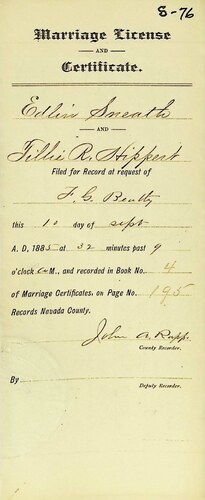 8-76
Marriage License
AND
Certificate.
Edlin Sneath
AND
Tillie R. Hippert
Filed for Record at request of
F. G. Beatty
this 10 day of Sept
A. D. 1885 at 32 minutes past 9
o'clock A M., and recorded in Book No. 4
of Marriage Certificates, on Page No. 195
Records Nevada County.
John A. Rapp.
County Recorder.
By
Deputy Recorder.